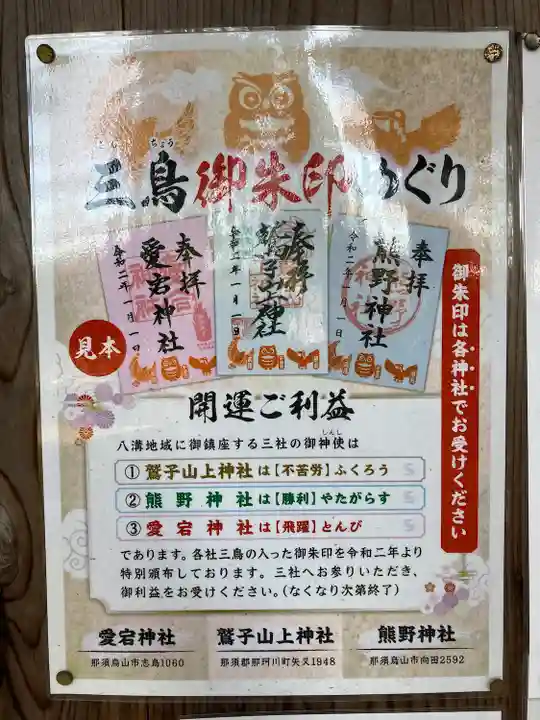 さん ちょう
三鳥御朱印めぐり
奉拝
愛宕神社
令和二年一月一日
奉拝
鷲子山上神社
令和二年一月一日
奉拝
熊野神社
令和二年一月一日
見本
御朱印は各神社でお受けください
開運ご利益
八溝地域に御鎮座する三社の御神使は
しんし
①鷲子山上神社は【不苦労】ふくろう
②熊野神社は【勝利】やたがらす
③愛宕神社は【飛躍】とんび
であります。各社三鳥の入った御朱印を令和二年より
特別頒布しております。三社へお参りいただき、
御利益をお受けください。(なくなり次第終了)
愛宕神社
那須烏山市志鳥1060
鷲子山上神社
那須郡那珂川町矢又1948
熊野神社
那須烏山市向田2592